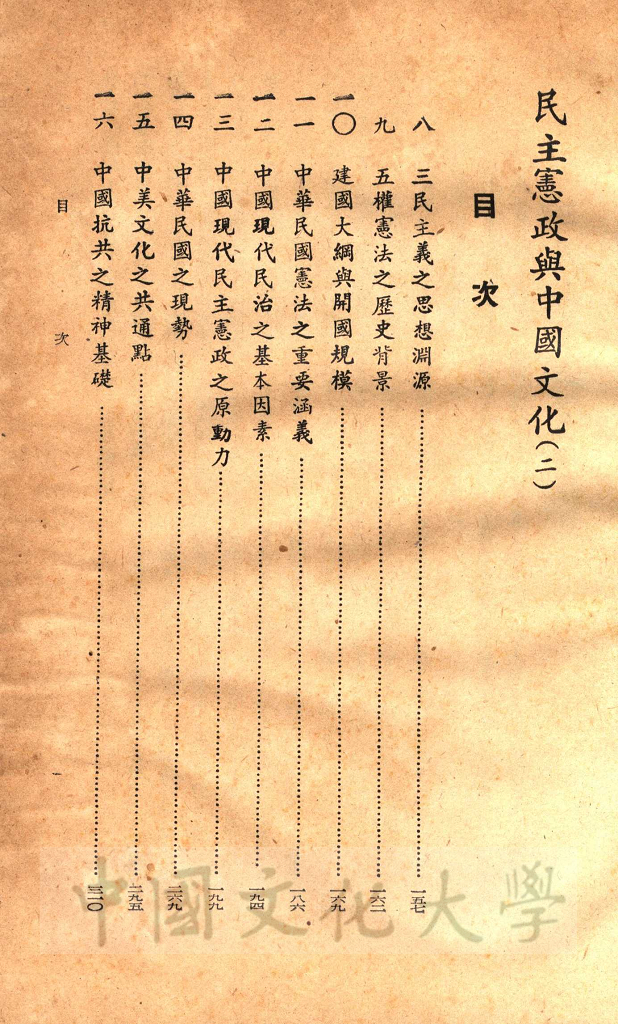 民主憲政與中國文化(二)
目次
八 三民主義之思想淵源……一五七
九 五權憲法之歷史背景……一六二
一〇 建國大綱與開國規模……一六九
一一 中華民國憲法之重要涵義……一八六
一二 中國現代民治之基本因素……一九四
一三 中國現代民主憲政之原動力……一九九
一四 中華民國之現勢……二六九
一五 中美文化之共通點……二九五
一六 中國抗共之精神基礎……三一〇
目次
中國文化大學